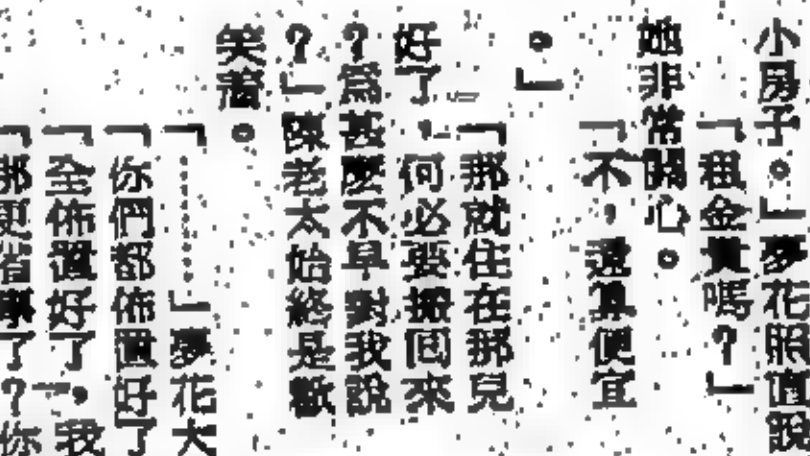 小房子。」夢花照直說
「租金貴嗎?」
她非常開心。
「不,還算便宜
。」
「那就住在那兒
好了,何必要搬回來
?為甚麼不早對我說
?」陳老太始終是歡
笑着。
「⋯⋯⋯」夢花大
「你們都佈置好了
「全佈置好了,我
那更省 了?你